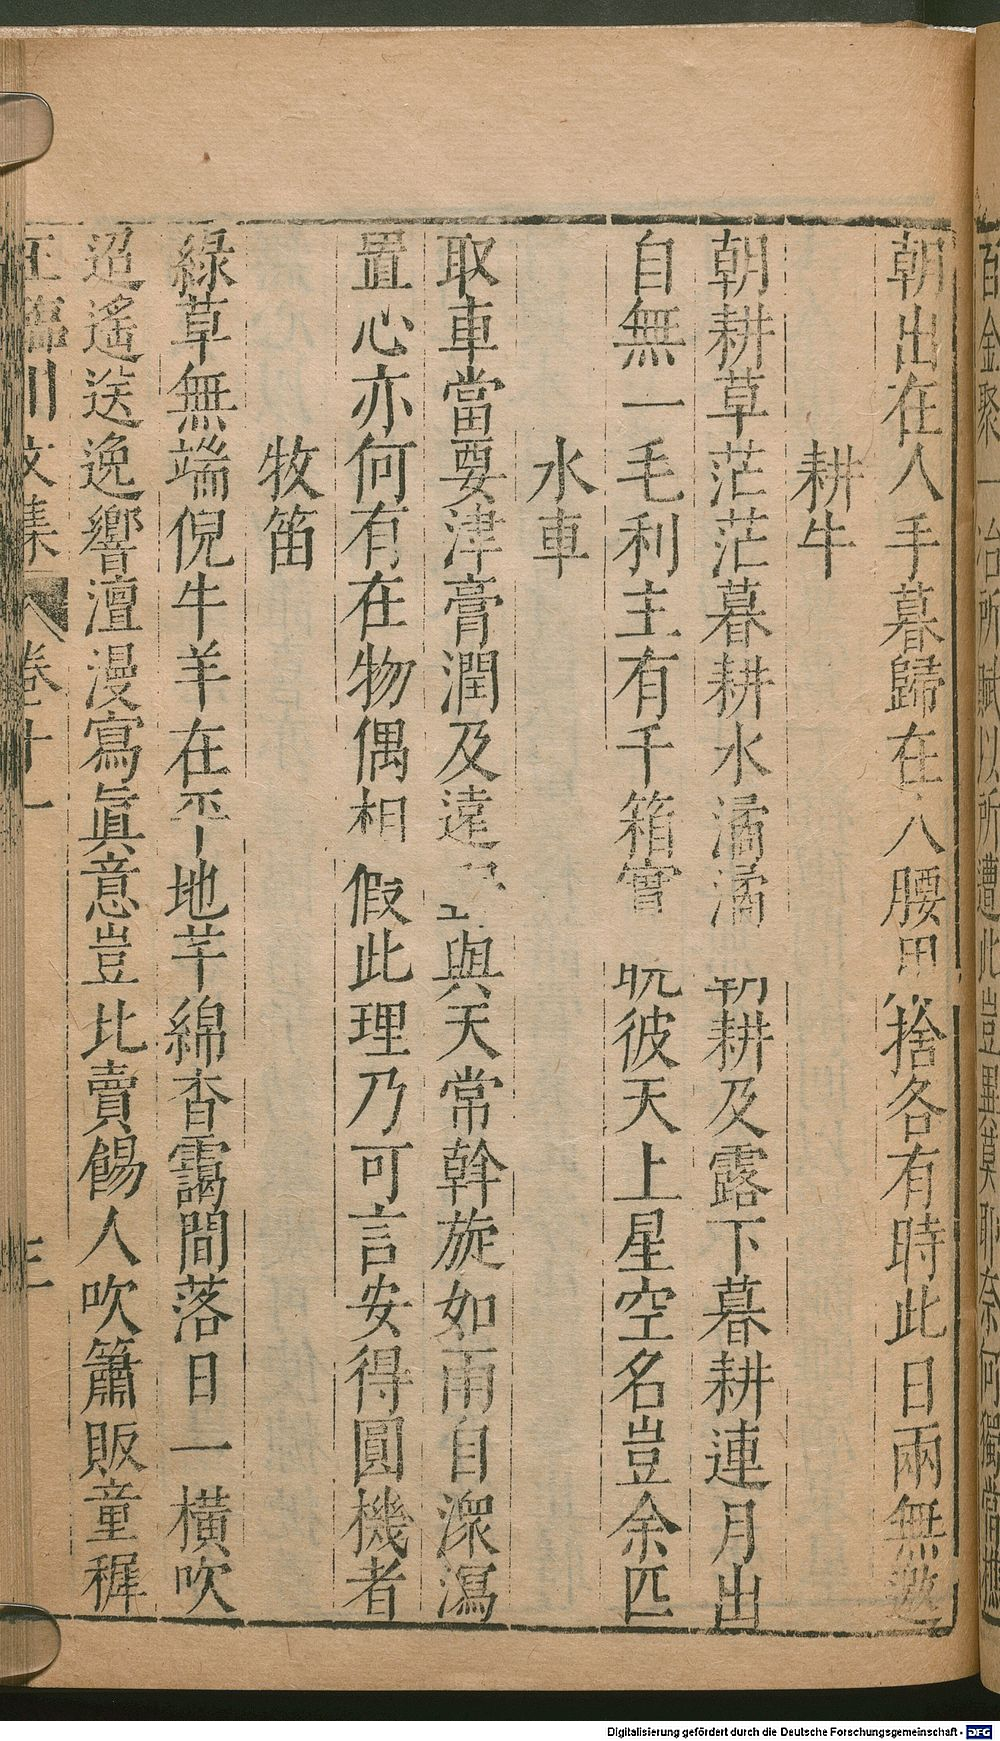 百金聚一冶所賦以所遭此豈異莫耶奈何獨當樵
朝出在人手暮歸在人腰用捨各有時此日兩無邀
耕牛
朝耕草茫茫暮耕水潏潏朝耕及露下暮耕連月出
自無一毛利主有千箱實睆彼天上星空名豈余匹
水車
取車當要津膏潤及遠野與天常幹旋如雨自潨瀉
置心亦何有在物偶相假此理乃可言安得圓機者
牧笛
綠草無端倪牛羊在平地芊綿杳靄間落日一橫吹
迢遙送逸響澶漫寫眞意豈比賣餳人吹簫販童稺
王臨川文集 卷十一 三
Digitalisierung gefördert durch die Deutsche Forschungsgemeinschaft - DFG